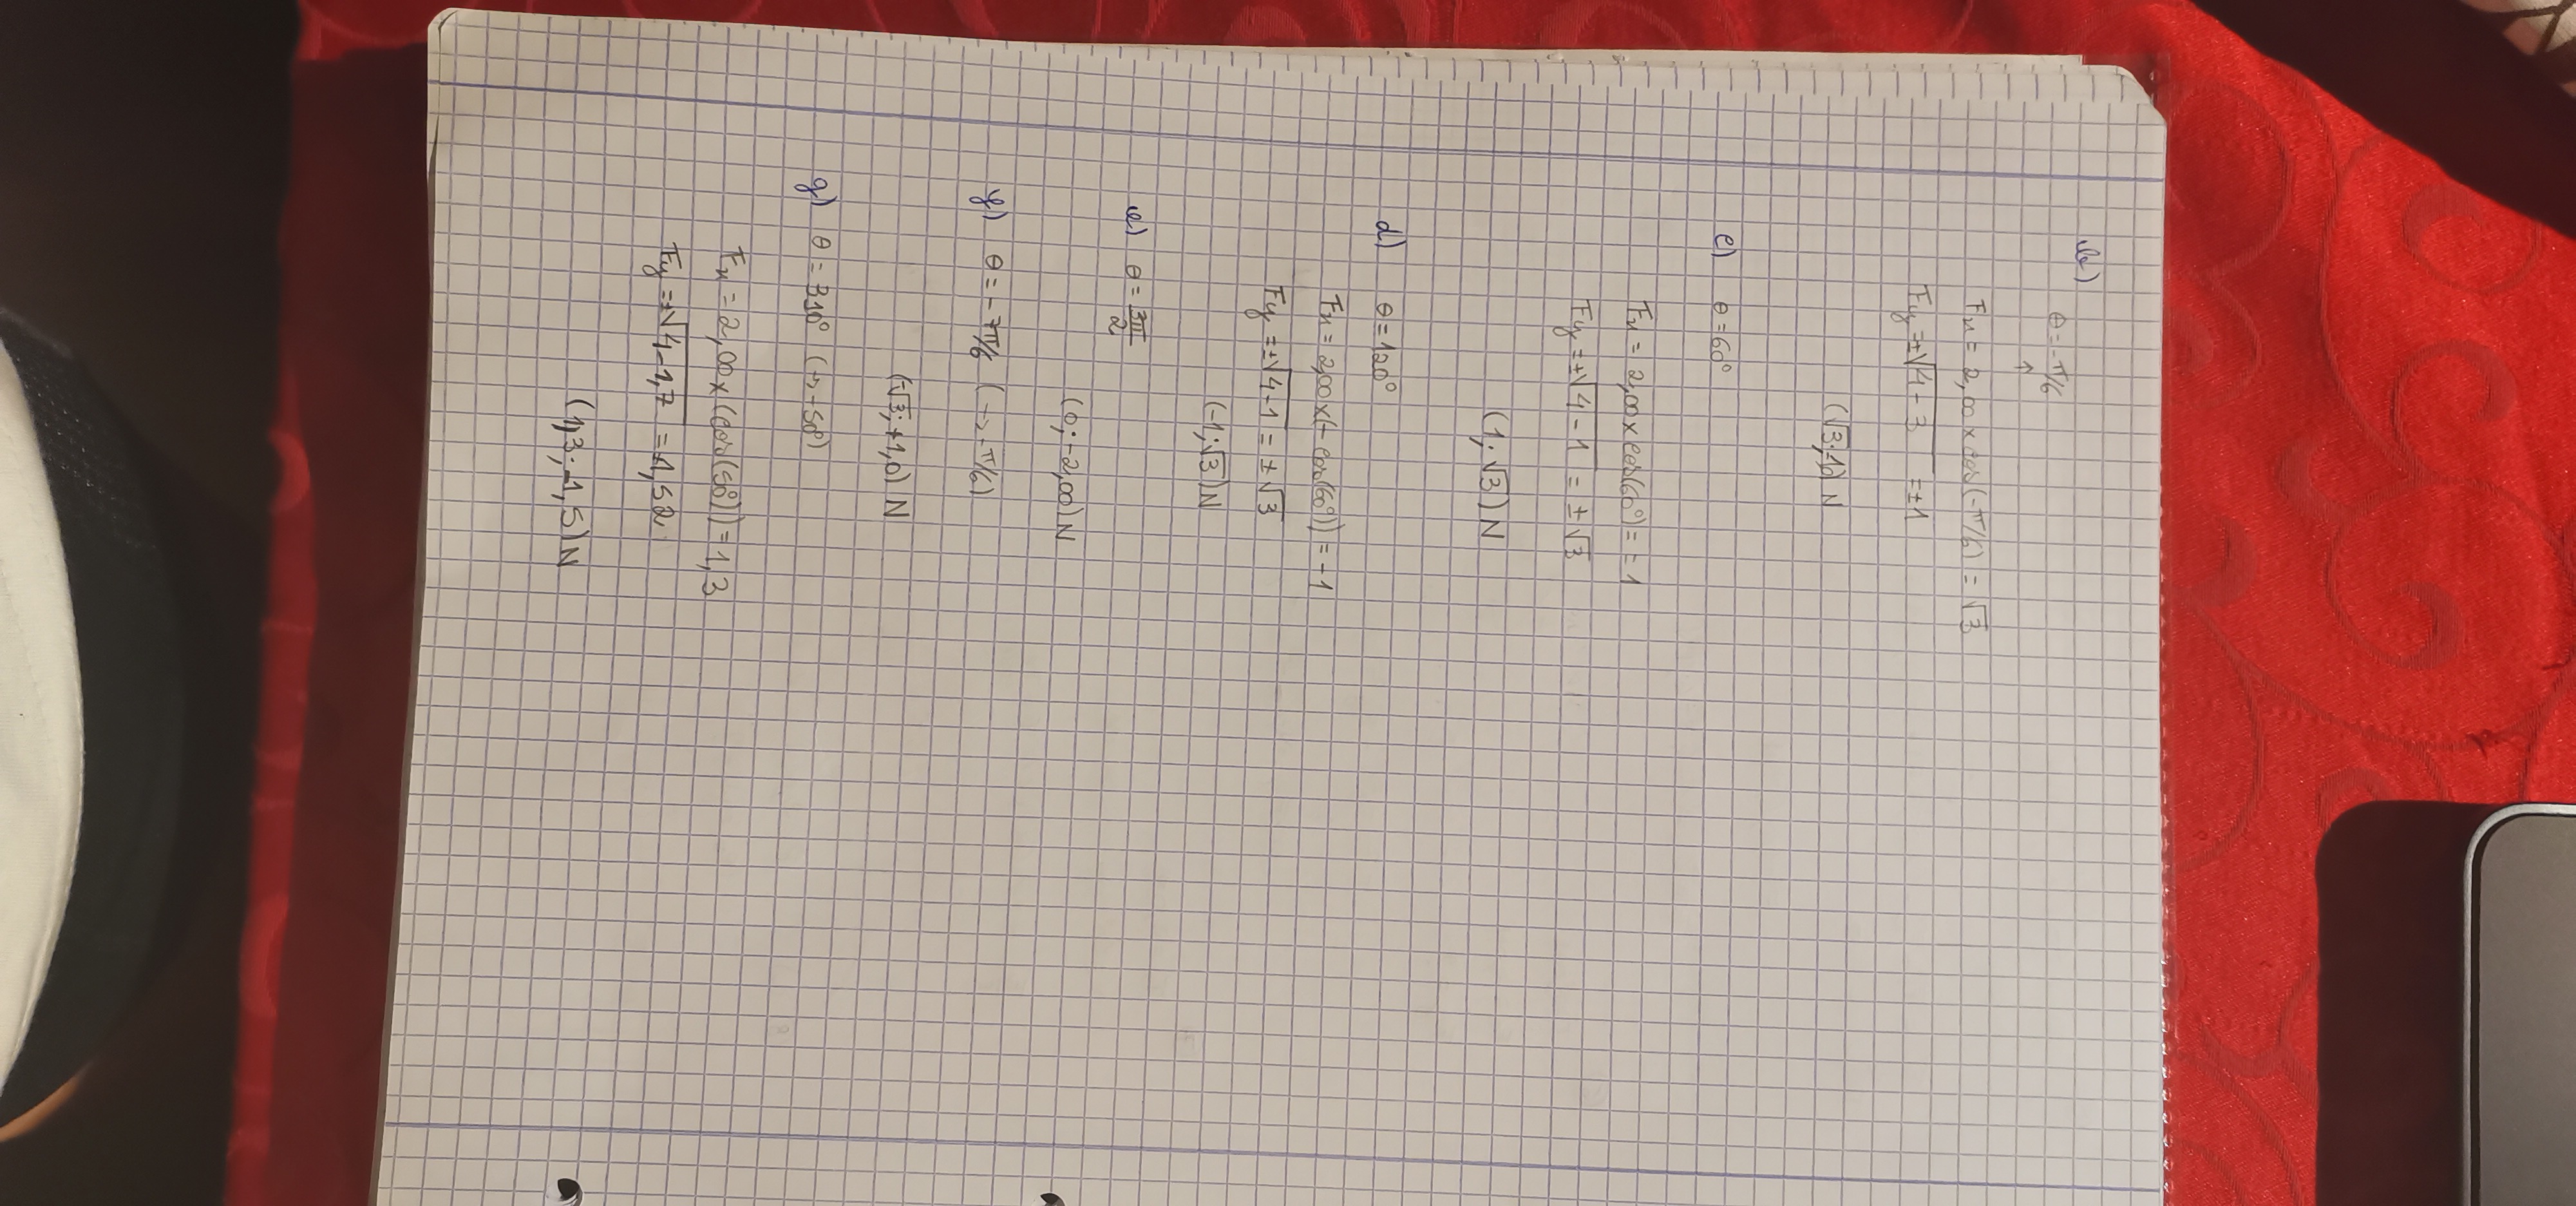 b) θ = -π/6
↑
Fx = 2,00 × cos(-π/6) = √3
Fy = ±√4-3 = ±1
(√3; -1,0) N
c) θ = 60°
Fx = 2,00 × cos(60°) = 1
Fy = ±√4-1 = ±√3
(1; √3) N
d) θ = 120°
Fx = 2,00 × (-cos(60°)) = -1
Fy = ±√4-1 = ±√3
(-1; √3) N
e) θ = 3π/2
(0; -2,00) N
f) θ = -7π/6 (→ -π/6)
(-√3; +1,0) N
g) θ = 310° (→ 50°)
Fx = 2,00 × (cos(50°)) = 1,3
Fy = ±√4-1,7 = 1,52
(1,3; -1,5) N